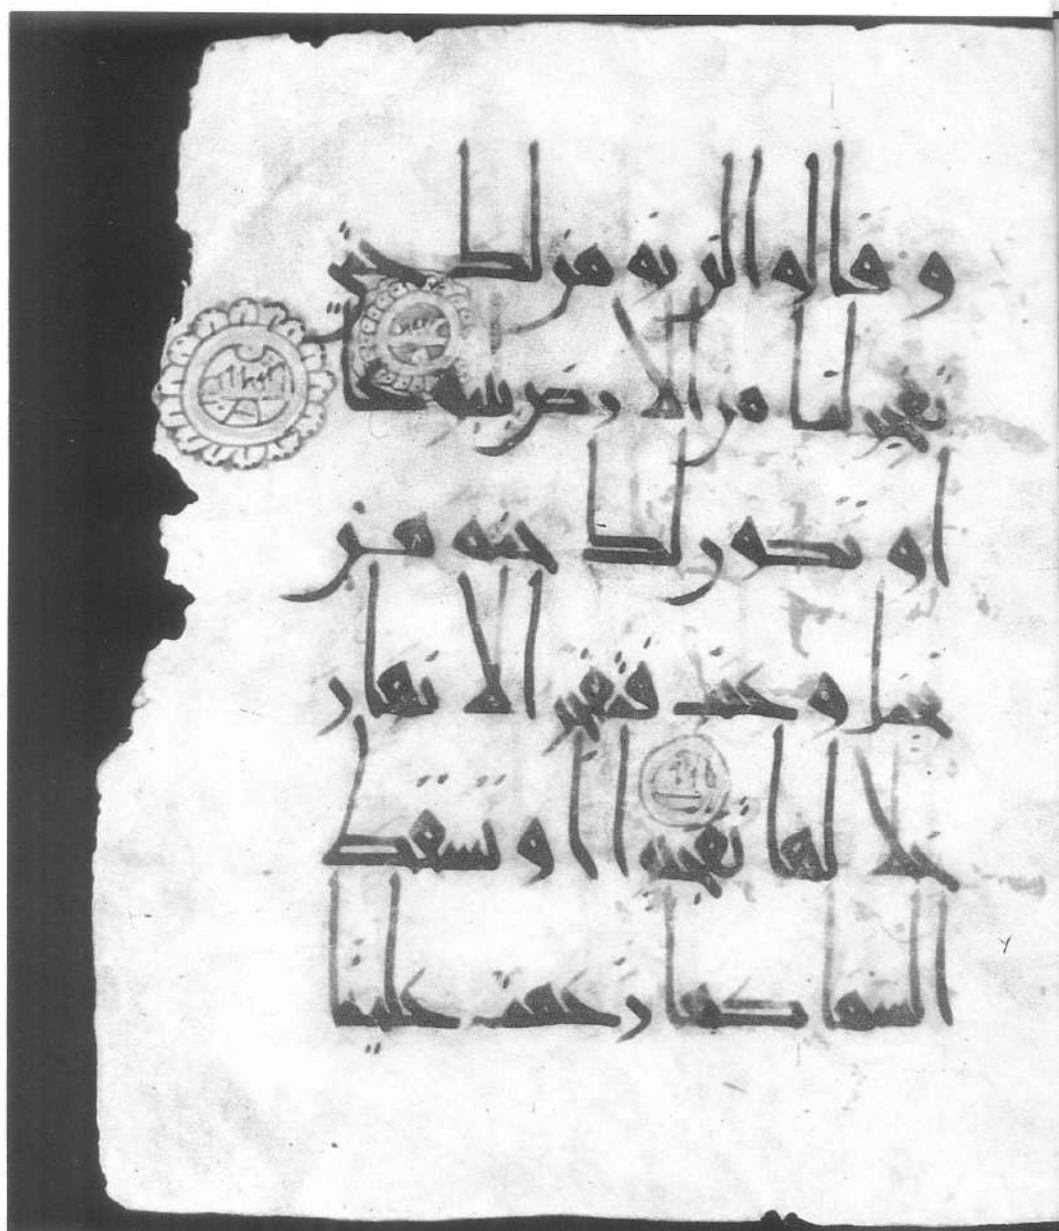 وقالوا لن نومن لك حتى
تفجر لنا من الارض ينبوعا
او تكون لك جنة من
نخيل وعنب فتفجر الانهار
خلالها تفجيرا او تسقط
السما كما زعمت علينا